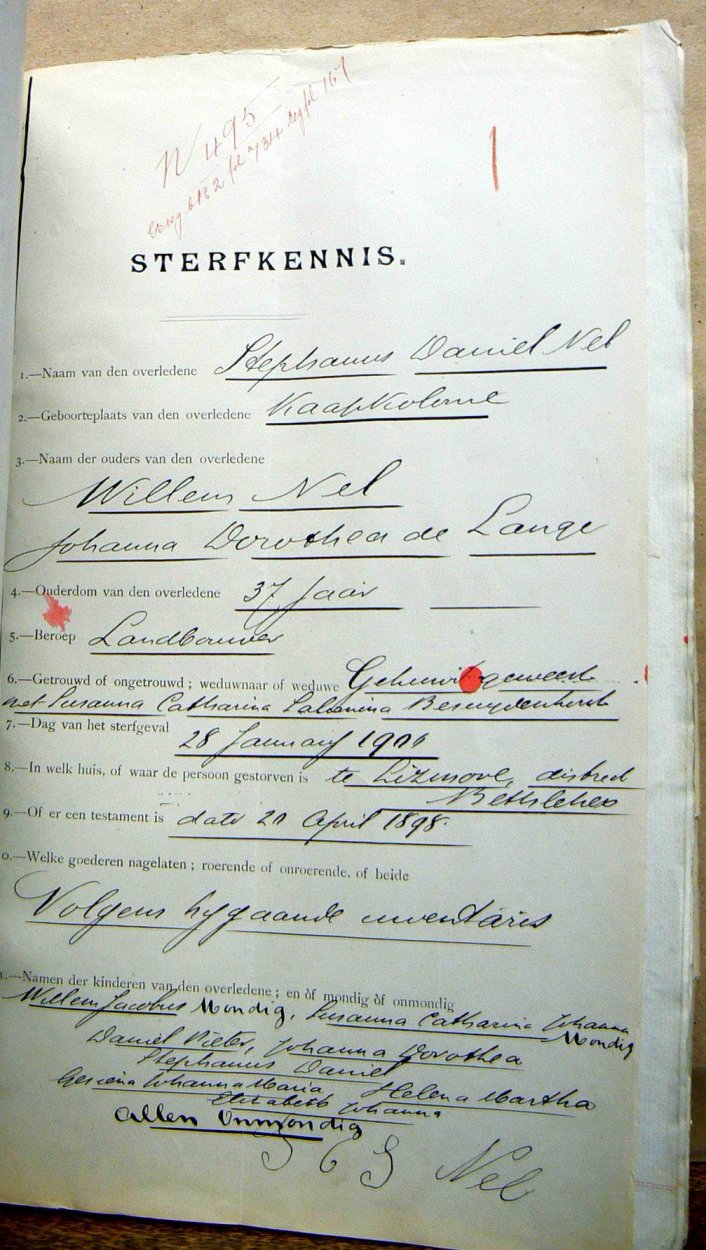 N 495
fol 167
STERFKENNIS.
1.—Naam van den overledene Stephanus Daniel Nel
2.—Geboorteplaats van den overledene Kaapkolonie
3.—Naam der ouders van den overledene
Willem Nel
Johanna Dorothea de Lange
4.—Ouderdom van den overledene 37 Jaar
5.—Beroep Landbouwer
6.—Getrouwd of ongetrouwd ; weduwnaar of weduwe geweest
met Susanna Catharina Salomina Besuydenhout
7.—Dag van het sterfgeval
28 January
8.—In welk huis, of waar de persoon gestorven is te district
Bethlehem
9.—Of er een testament is dato 20 April 1898.
0.—Welke goederen nagelaten ; roerende of onroerende, of beide
Volgens bygaande inventaris
1.—Namen der kinderen van den overledene ; en òf mondig òf onmondig
Willem Jacobus Mondig, Susanna Catharina Johanna
Mondig
Daniel Pieter, Johanna Dorothea
Stephanus Daniel
Johanna Maria Helena Martha
Elizabeth Johanna
allen Onmondig
Nel